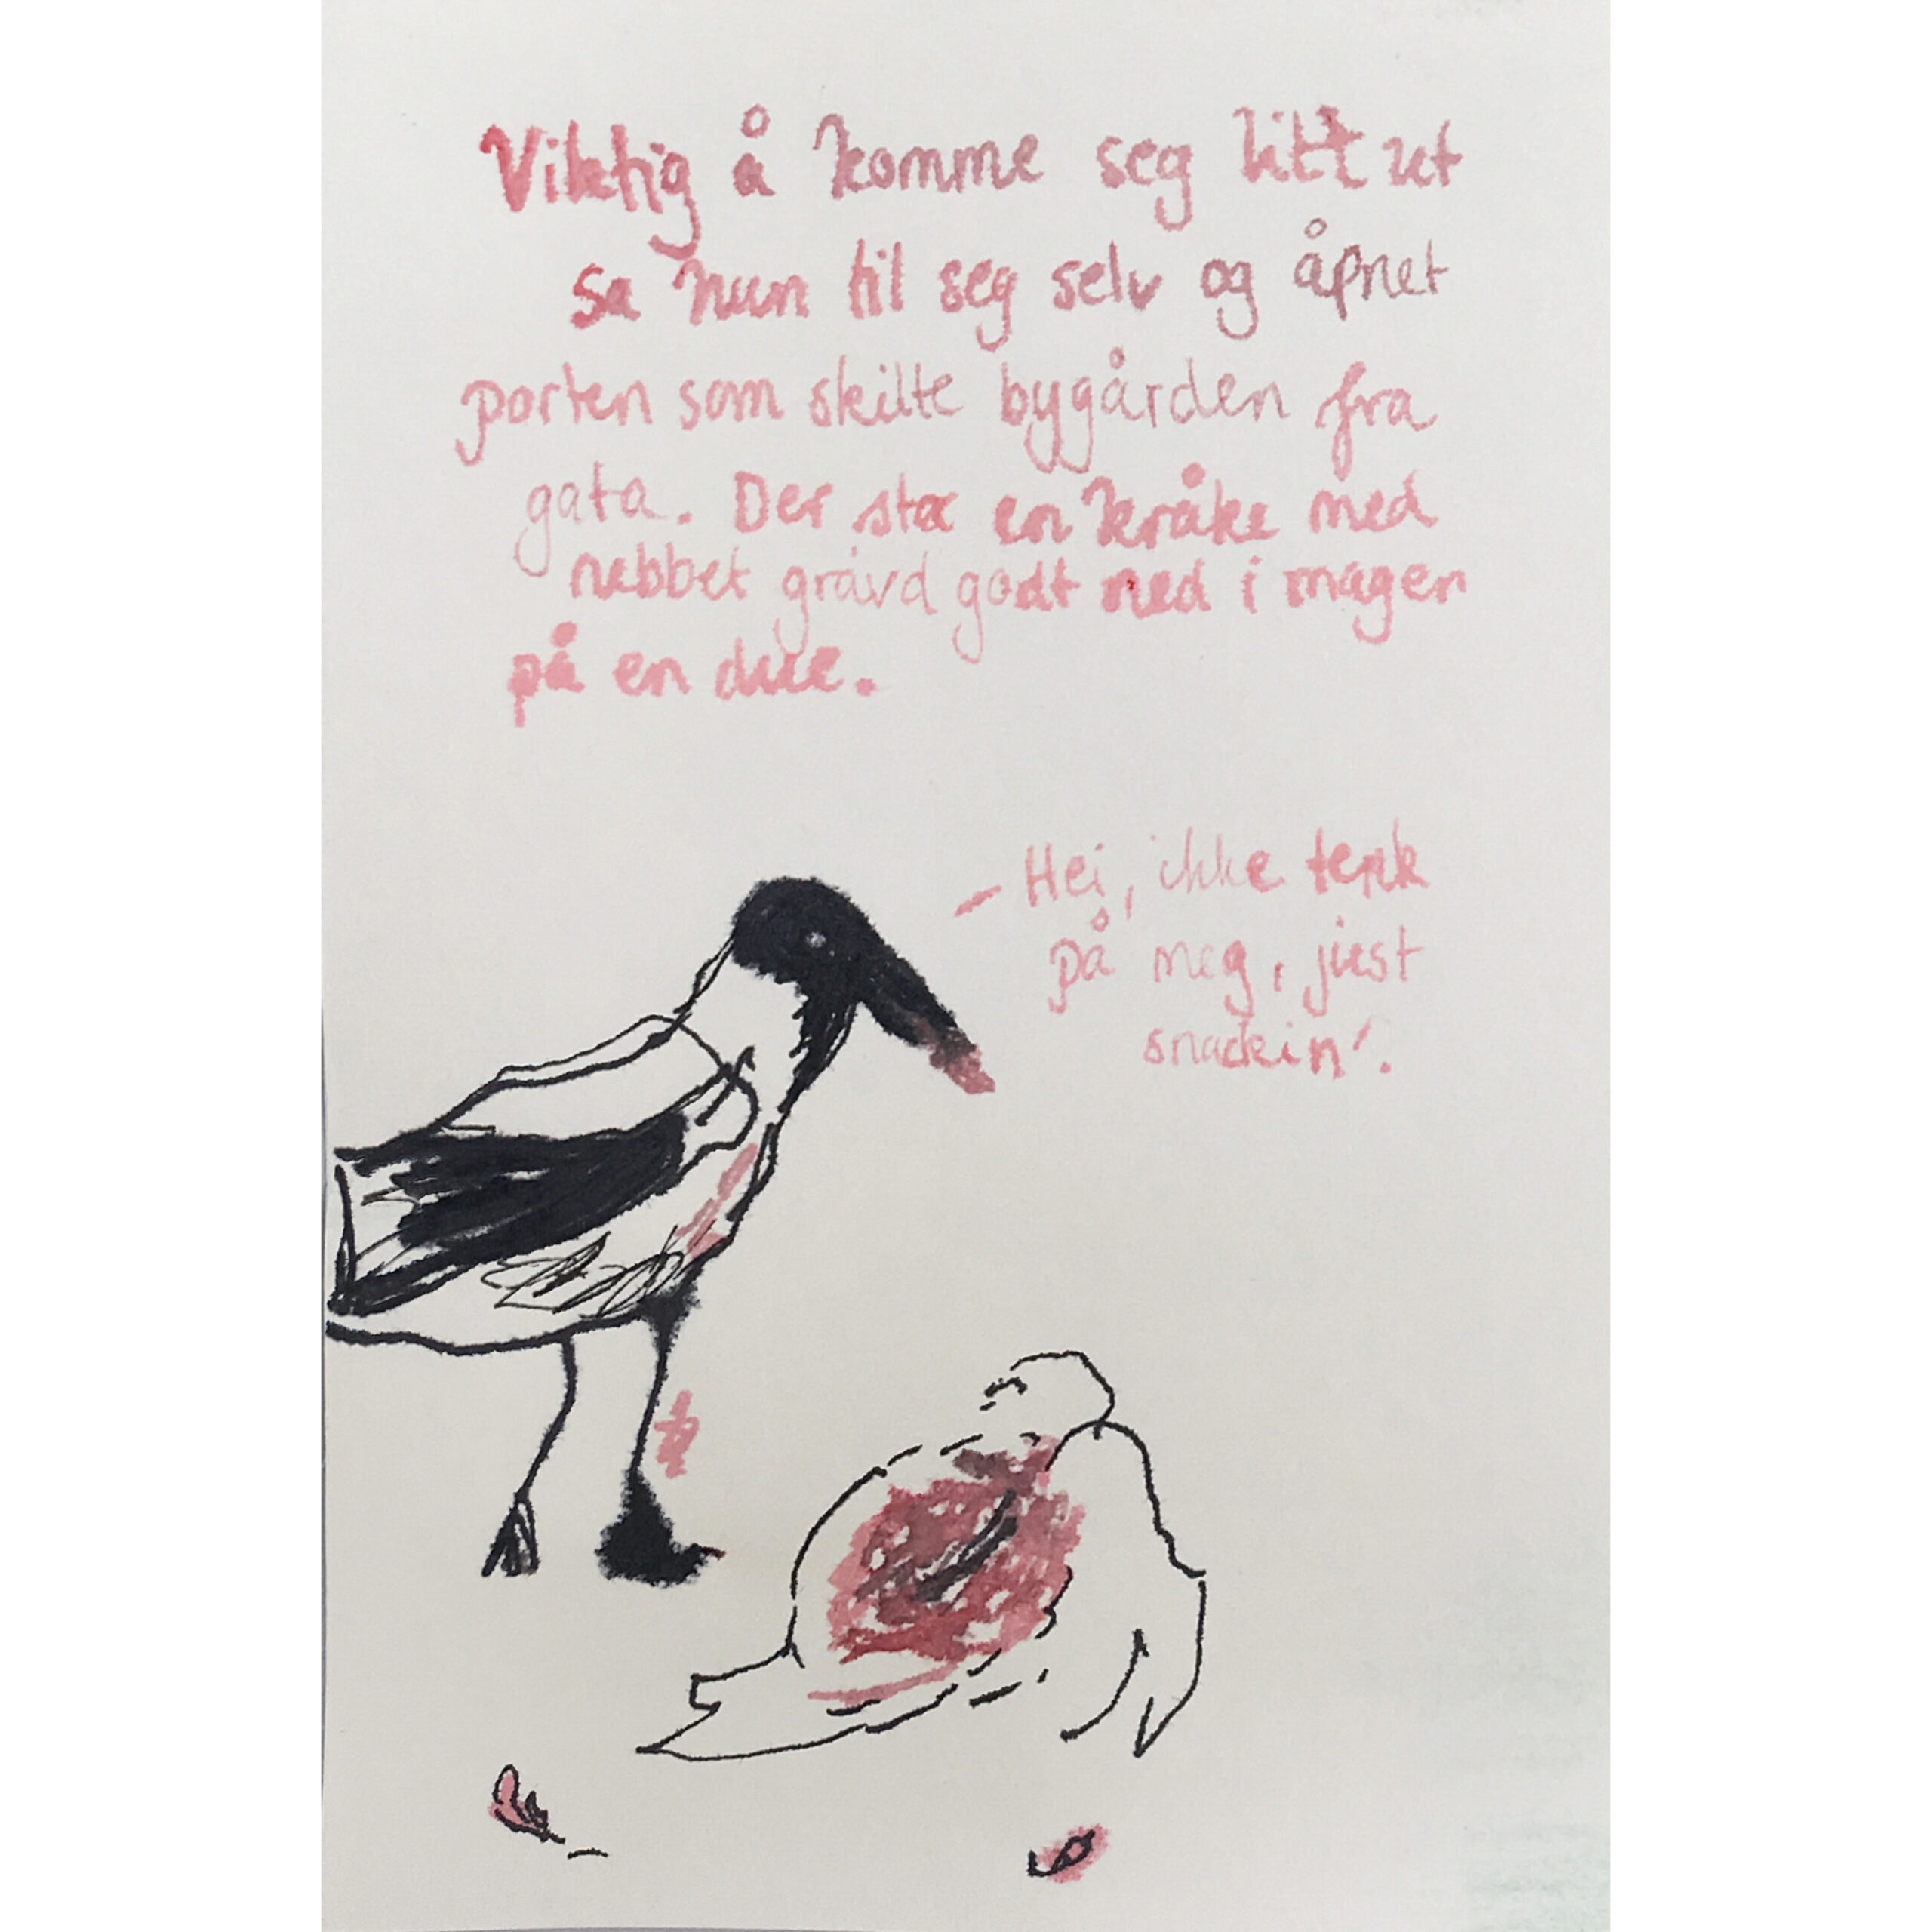 Viktig å komme seg litt ut
sa hun til seg selv og åpnet
porten som skilte bygården fra
gata. Der sto en kråke med
nebbet gravd godt ned i magen
på en due.
- Hei, ikke tenk
på meg, just
snackin'.